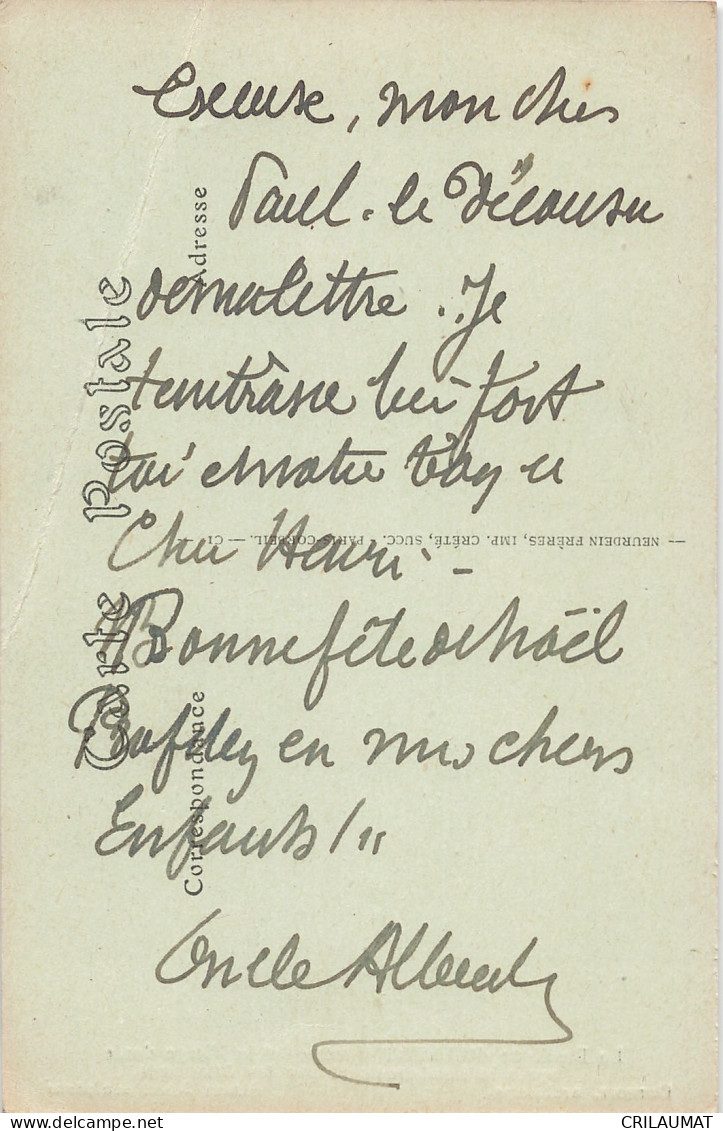 Excuse, mon cher
Paul. le décousu
de ma lettre. Je
t'embrasse bien fort
toi et notre
Cher Henri -
Bonne fête de Noël
Profitez en mes chers
Enfants !
Oncle Albert
Carte Postale
Adresse
Correspondance
— NEURDEIN FRÈRES, IMP. CRÉTÉ, SUCC. - PARIS-CORBEIL. — CI —
CRILAUMAT